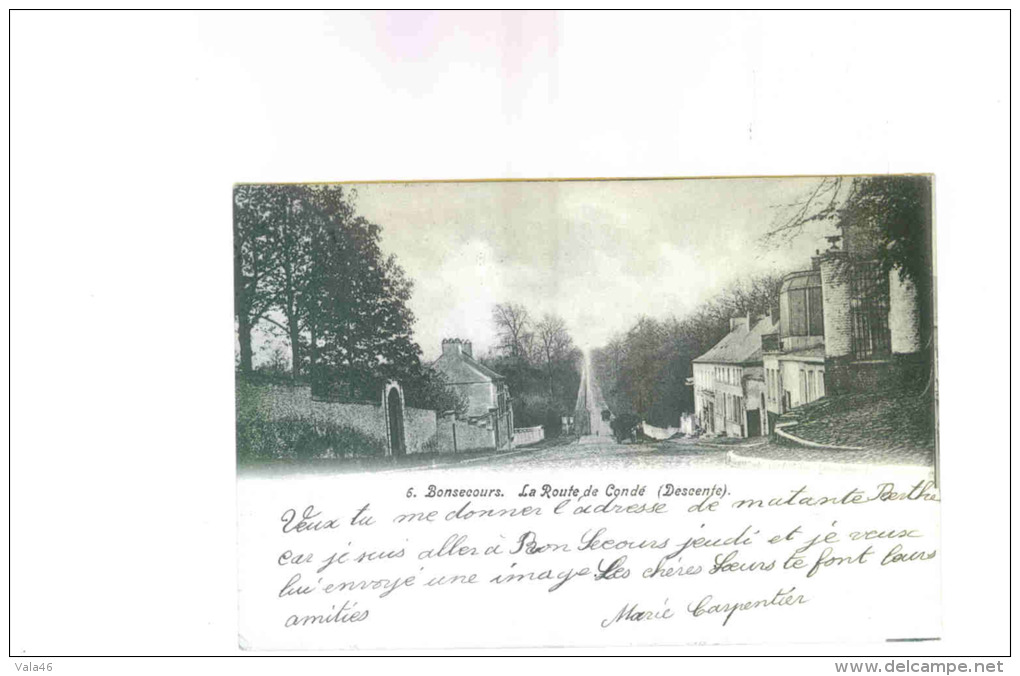 6. Bonsecours. La Route de Condé (Descente).
Veux tu me donner l'adresse de matante Berthe
car je suis aller à Bon Secours jeudi et je veux
lui envoyé une image Les chéres Sœurs te font leurs
amitiés
Marie Carpentier
Vala46
www.delcampe.net